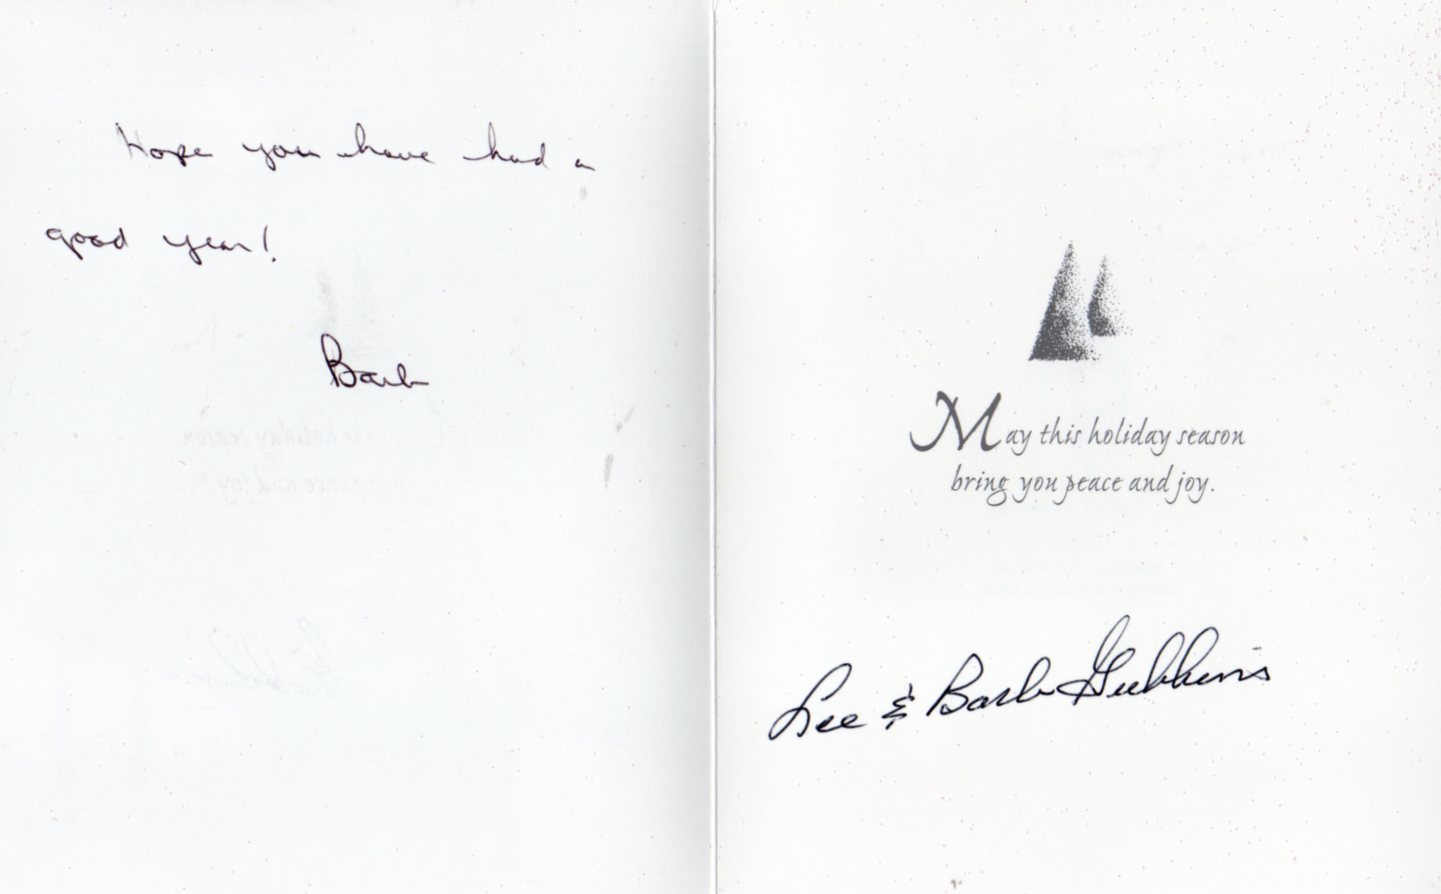 Hope you have had a
good year!
Barb
May this holiday season
bring you peace and joy.
Lee & Barb Gubbins